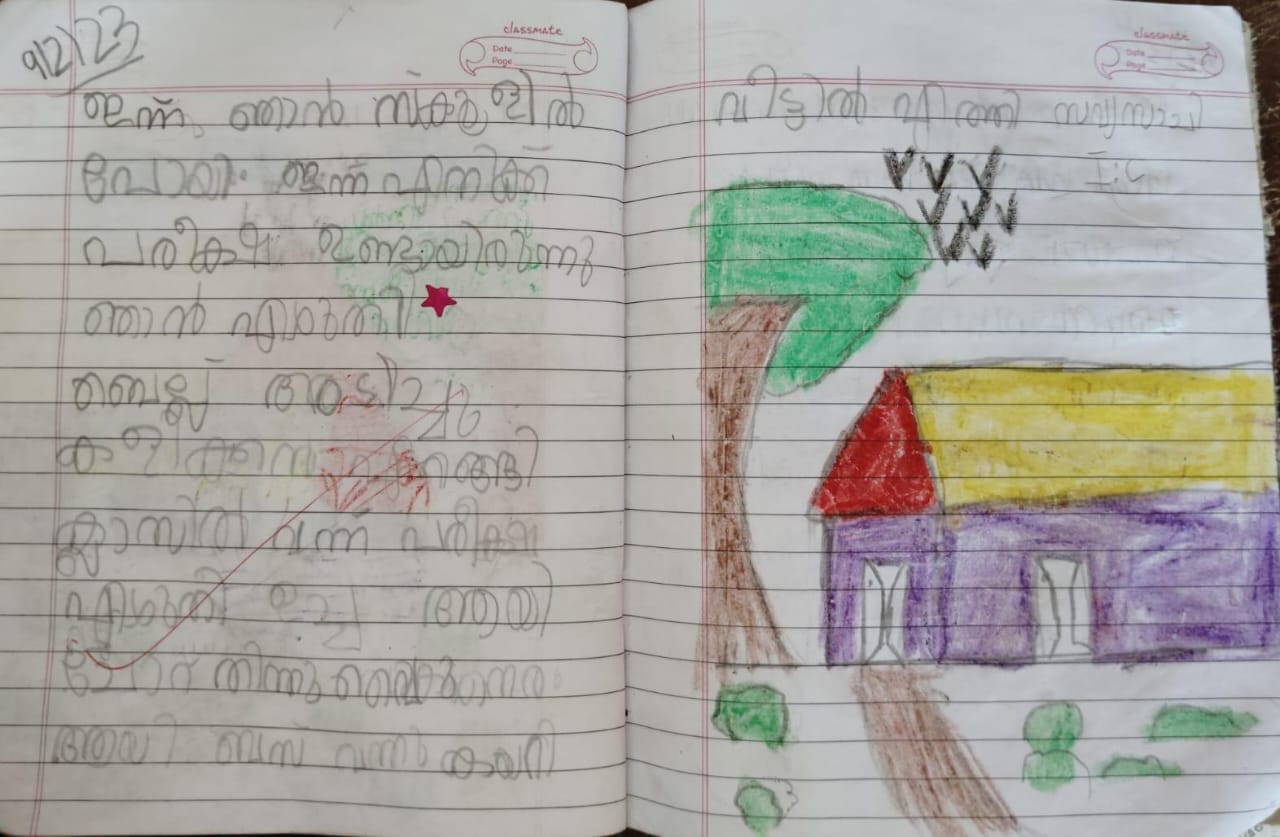 9/2/23
classmate
Date
Page
ഇന്ന് ഞാൻ സ്കൂളിൽ
പോയി. ഇന്ന് എനിക്ക്
പരീക്ഷ ഉണ്ടായിരുന്നു
ഞാൻ എഴുതി
ബെല്ല് അടിച്ചു
കളിക്കുന്ന
ക്ലാസിൽ വന്ന് പരീക്ഷ
എഴുതി ഉച്ച ആയി
ചോറ് തിന്നു വൈകുന്നേരം
ആയി ബസ് വന്നു കയറി
classmate
Date
Page
വീട്ടിൽ എത്തി സവ്യസാചി